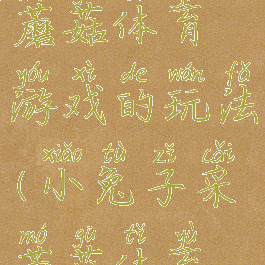 蘑菇体育
yóu xì de wán fǎ
游戏的玩法
xiǎo tù zǐ cǎi
(小兔子采
mó gū tǐ yù
蘑菇体育